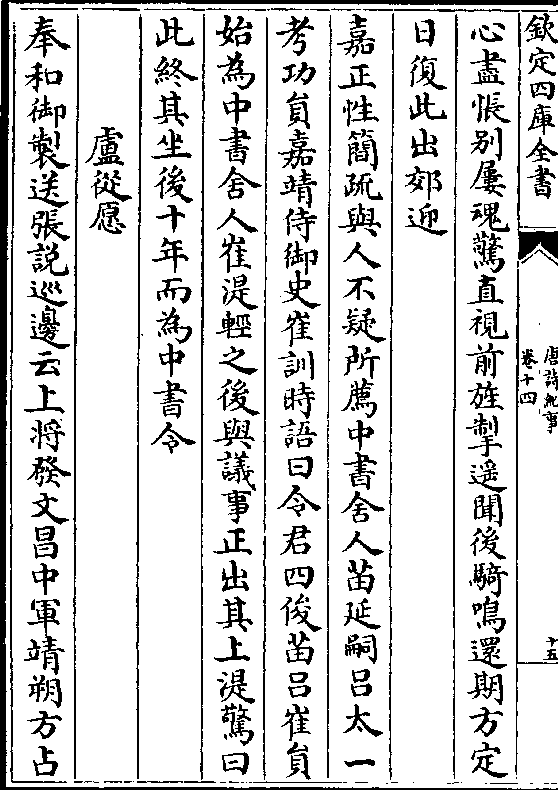 欽定四庫全書
唐詩紀事
卷十四
十五
心盡悵别屢魂驚直視前旌掣遥聞後騎鳴還期方定
日復此出郊迎
嘉正性簡疏與人不疑所薦中書舍人苗延嗣吕太一
考功貟嘉靖侍御史崔訓時語曰令君四俊苗吕崔貟
始為中書舍人崔湜輕之後與議事正出其上湜驚曰
此終其坐後十年而為中書令
盧從愿
奉和御製送張説巡邊云上将發文昌中軍靖朔方占